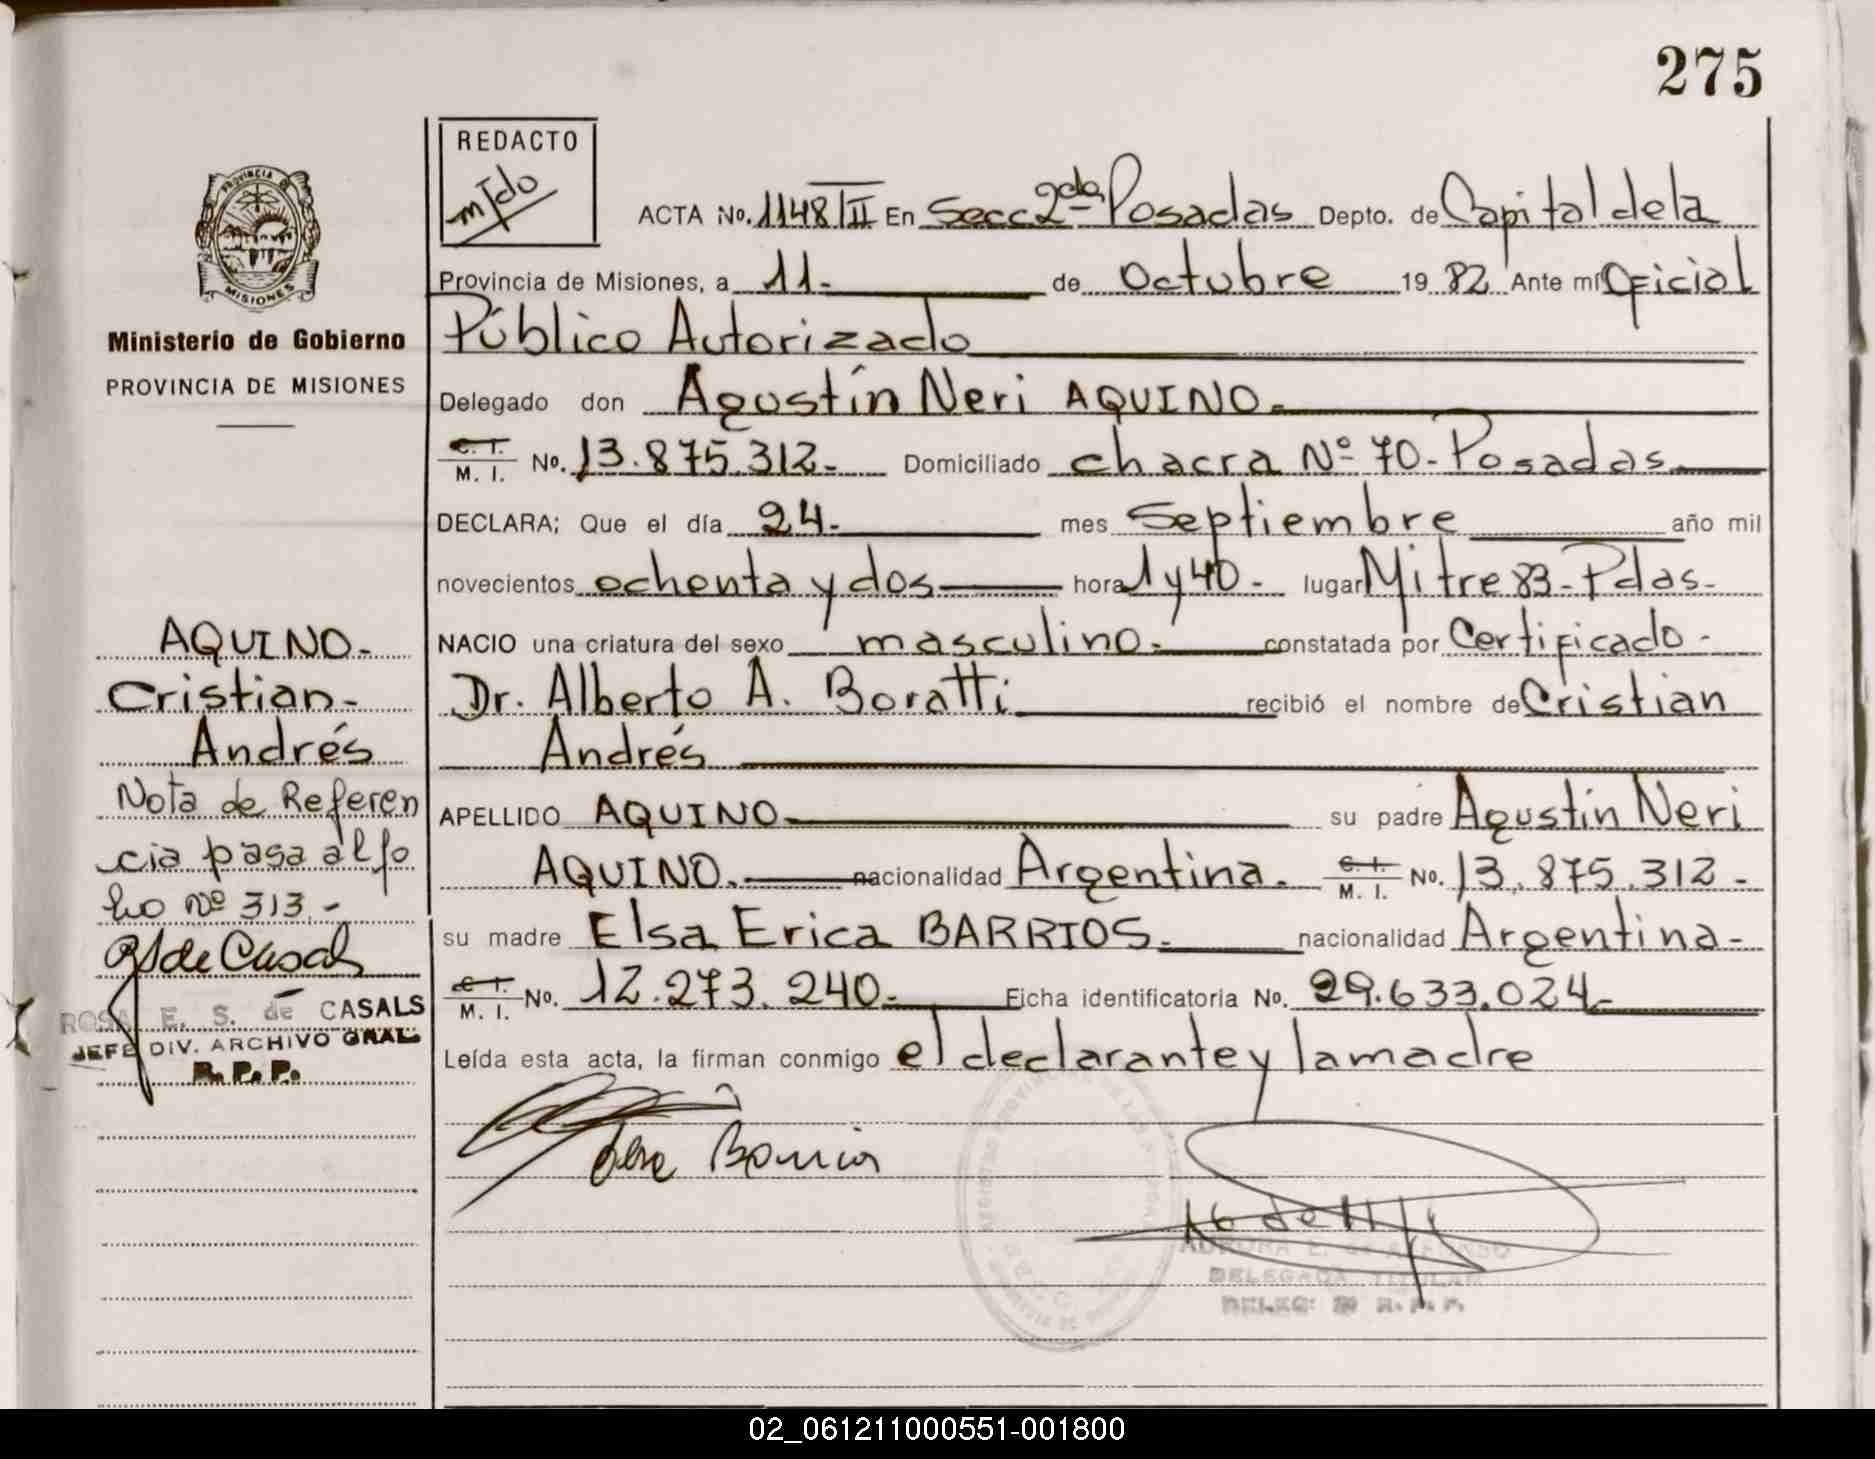 275
REDACTO
ACTA No. 1148/II En Secc 2da Posadas Depto. de Capital de la
Provincia de Misiones, a 11.- de Octubre 19 82 Ante mí Oficial
Público Autorizado
Delegado don Agustín Neri AQUINO.-
C. I. M. I. No. 13.875.312.- Domiciliado chacra Nº 70- Posadas
DECLARA; Que el día 24.- mes Septiembre año mil
novecientos ochenta y dos hora 1 y 40.- lugar Mitre 83-Pdas.-
NACIO una criatura del sexo masculino.- constatada por Certificado-
Dr. Alberto A. Boratti recibió el nombre de Cristian
Andrés
APELLIDO AQUINO.- su padre Agustín Neri
AQUINO.- nacionalidad Argentina.- C. I. M. I. No. 13.875.312-
su madre Elsa Erica BARRIOS.- nacionalidad Argentina-
C. I. M. I. No. 12.273.240- Ficha identificatoria No. 29.633.024-
Leída esta acta, la firman conmigo el declarante y la madre
PROVINCIA DE
MISIONES
Ministerio de Gobierno
PROVINCIA DE MISIONES
AQUINO.-
Cristian-
Andrés
Nota de Referen
cia pasa al fo
lio Nº 313.-
ROSA E. S. de CASALS
JEFE DIV. ARCHIVO GRAL.
R. P. P.
DELEGADA TITULAR
02_061211000551-001800